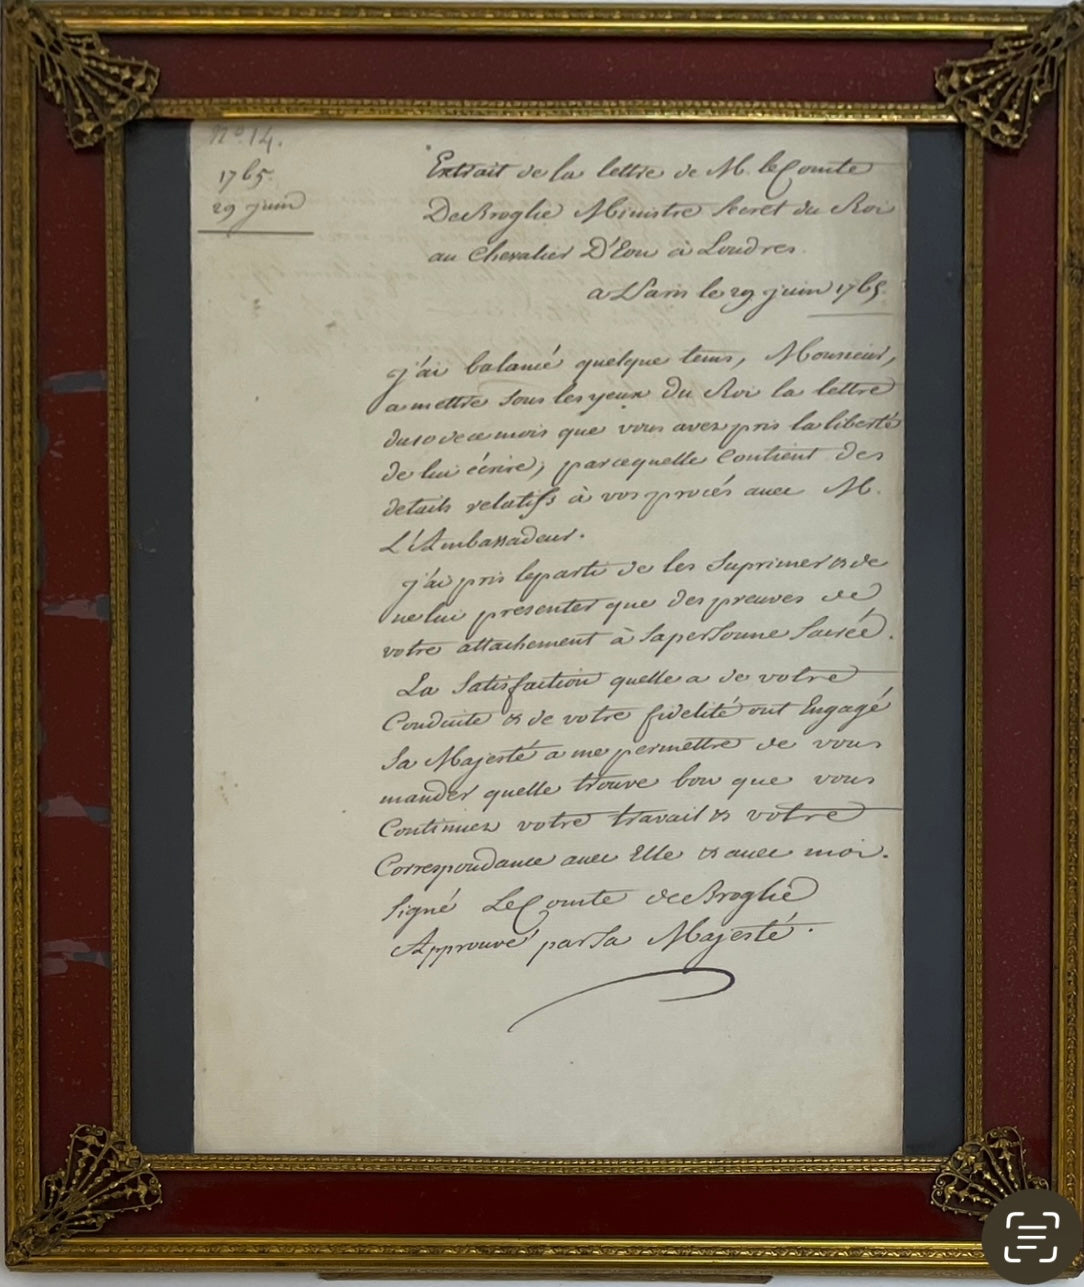 N.º 14.
1765.
29 juin
Extrait de la lettre de M. le Comte
De Broglie Ministre Secret du Roi
au Chevalier D'Eon à Londres.
a Paris le 29 juin 1765.
j'ai balancé quelque tems, Monsieur,
a mettre sous les yeux du Roi la lettre
du 10 de ce mois que vous avez pris la liberté
de lui écrire, parcequelle Contient des
details relatifs à vos procés avec M.
L'Ambassadeur.
j'ai pris leparti de les Suprimer & de
ne lui presenter que des preuves de
votre attachement à Sa personne Sacrée.
La Satisfaction quelle a de votre
Conduite & de votre fidelité ont Engagé
Sa Majesté a me permettre de vous
mander quelle trouve bon que vous
Continuez votre travail & votre
Correspondance avec Elle & avec moi.
Signé Le Comte de Broglie
Approuvé par Sa Majesté.